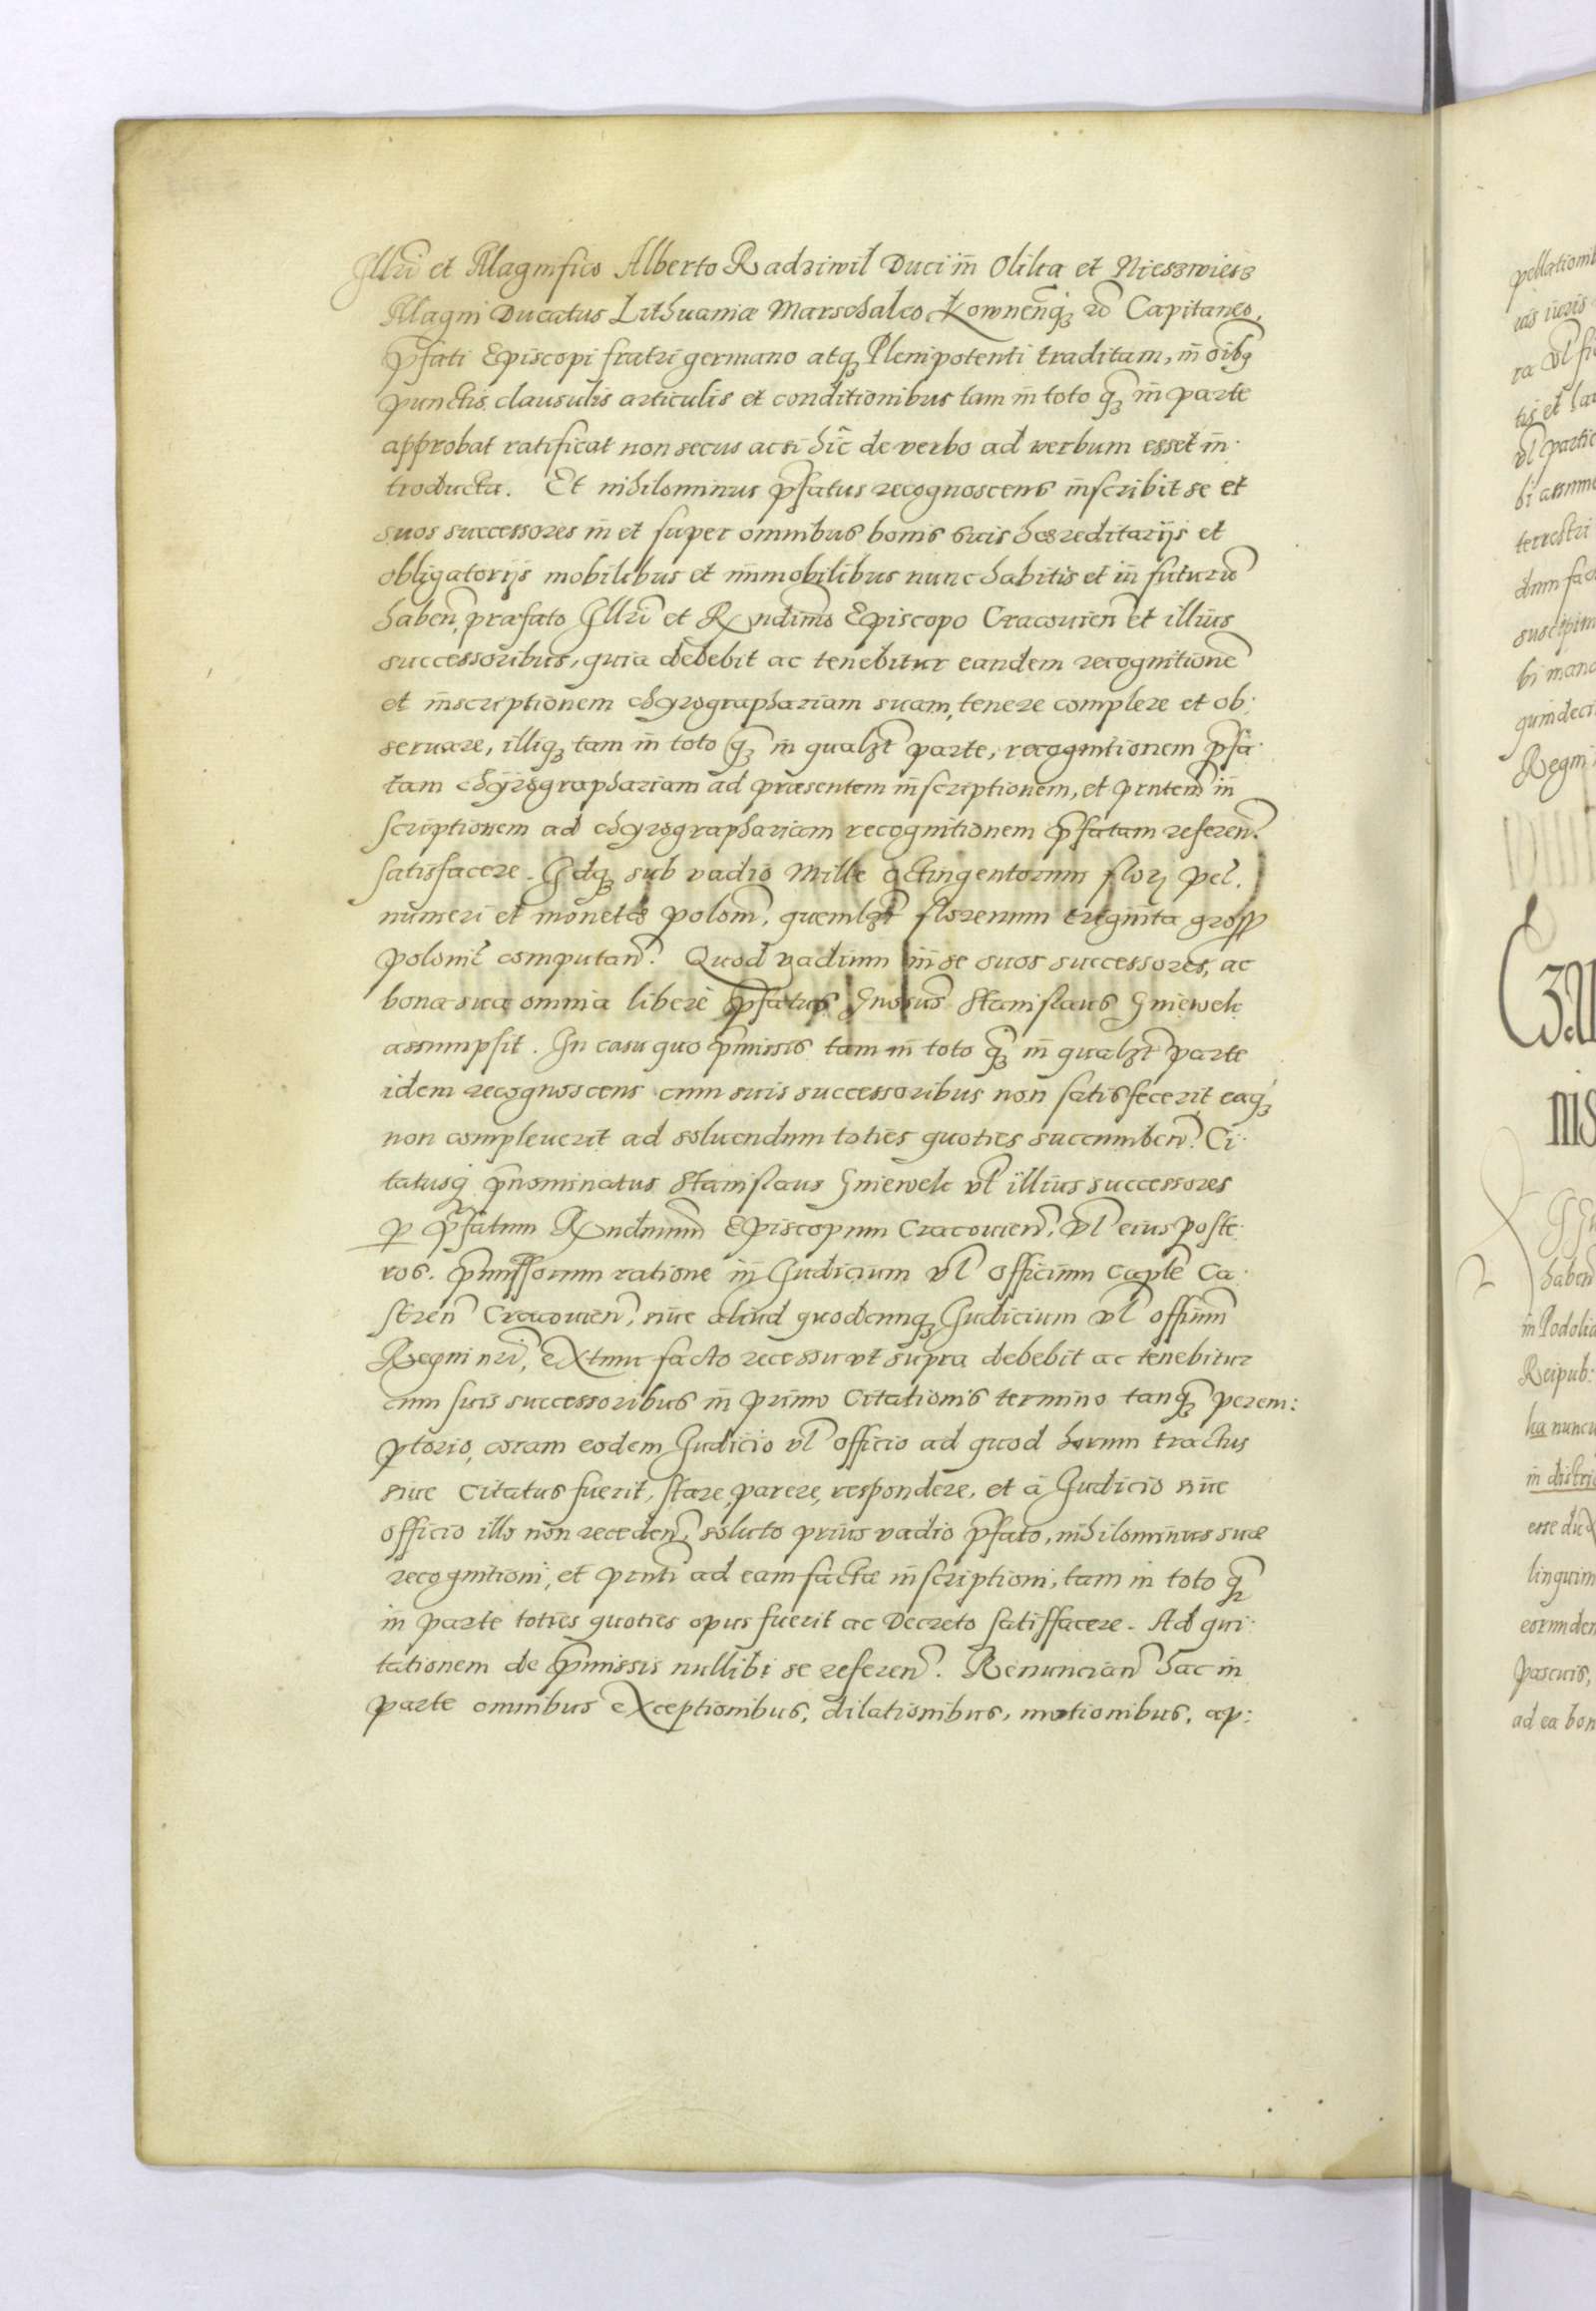 Illri et Magnifico Alberto Radziwil Duci in Olika et Nieszwiesz
Magni Ducatus Lithuaniæ Marschalco, Kownenq3 Capitaneo,
p̄fati Episcopi fratri germano atq3 Plenipotenti traditam, in oibq
punctis clausulis articulis et conditionibus tam in toto q̄3 in parte
approbat ratificat non secus ac si hic de verbo ad verbum esset in:
troducta. Et nihilominus p̄fatus recognoscens inscribit se et
suos successores in et super omnibus bonis suis hæreditarijs et
obligatorijs mobilibus et immobilibus nunc habitis et in futurū
haben̄, præfato Illri et Rndimo Episcopo Cracouien̄ et illius
successoribus, quia debebit ac tenebitur eandem recognitionē
et inscriptionem chyrographariam suam, tenere complere et ob:
seruare, illiq3 tam in toto q̄3 in qualzt parte, recognitionem p̄fa:
tam chyrographariam ad præsentem inscriptionem, et pn̄tem in
scriptionem ad chyrographariam recognitionem p̄fatam referen̄.
satisfacere. Idq3 sub vadio Mille octingentorum flor pol.
numeri et monetæ polon̄, quemlzt florenum triginta gross
polonil computan̄. Quod vadium in se suos successores, ac
bona sua omnia liberè p̄fatus Gn̄osus Stanislaus Gniewek
assumpsit. In casu quo p̄missis tam in toto q̄3 in qualzt parte
idem recognoscens cum suis successoribus non satisfecerit eaq3
non compleuerit ad soluendum toties quoties succumben̄. Ci:
tatusq p̄nominatus Stanislaus Gniewek vl illius successores
p p̄fatum Rndmum Episcopum Cracouien̄, vl eius poste:
ros. p̄missorum ratione in Judicium vl officium Caple Ca:
stren̄ Cracouien̄, siue aliud quodcunq3 Judicium vl offiium
Regni nri, extunc facto recessu vt supra debebit ac tenebitur
cum suis successoribus in primo Citationis termino tanq̄3 perem:
ptorio, coram eodem Judicio vl officio ad quod horum tractus
siue Citatus fuerit, stare, parere, respondere, et à Judicio siue
officio illo non receden̄, soluto prius vadio p̄fato, nihilominus suæ
recognitioni, et pn̄ti ad eam factæ inscriptioni, tam in toto q̄3
in parte toties quoties opus fuerit ac Decreto satisfacere. Ad qui:
tationem de p̄missis nullibi se referen̄. Renuncian̄ hac in
parte omnibus exceptionibus, dilationibus, motionibus, ap: